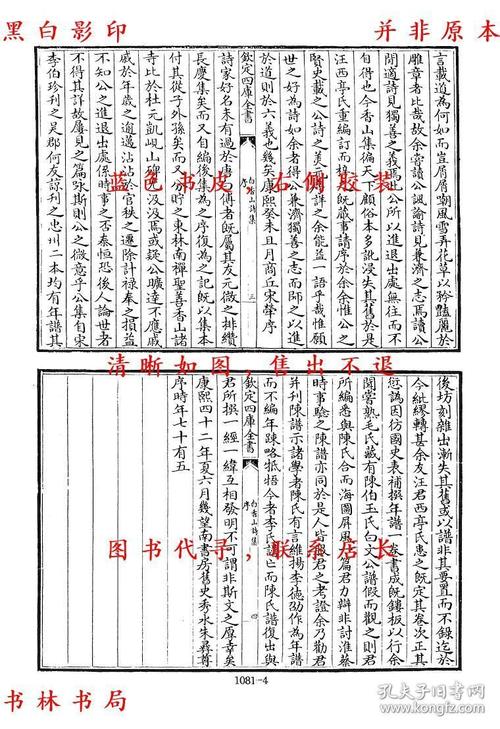 黑白影印
并非原本
言載道為何如而豈屑屑嘲風雪弄花草以矜豔麗於
雕章者比哉故余嘗讀公諷諭詩見兼濟之志焉讀公
閒適詩見獨善之義焉此公所以進退出處無往而不
自得也今香山集徧天下顧俗本多訛浸失其舊於是
汪西亭氏重編訂而梓之既蕆事請序於余余惟公之
賢史載之公詩之美前人詳之余能益一語乎哉惟願
世之好為詩如余者得公兼濟獨善之志而師之以進
於道則於六義也幾矣康熙癸未且月商丘宋犖序
欽定四庫全書
白香山詩集
序
三
詩家好名未有過於唐白傅者既屬其友元微之排纘
長慶集矣而又自編後集為之序復為之記既以集本
付其從子外孫矣而又分貯之東林南禪聖善香山諸
寺比於杜元凱峴山碑尤汲汲焉或疑公曠達不應戚
戚於年歲之逾邁沾沾於官秩之遷除計祿奉之損益
不知公之進退出處係時事之否泰恒恐後人論世者
不得其詳故屢見之篇詠斯則公之微意乎公集自宋
李伯珍刊之吳郡何友諒刊之忠州二本均有年譜其
蓝色书皮,右侧胶装
清晰如图,售出不退
後坊刻雜出漸失其舊或以譜非其要置而不錄迄於
今紕繆轉甚余友汪君西亭氏患之既定其卷次正其
愆譌因彷國史表補撰年譜一卷書成既鏤板以行余
聞嘗熟毛氏藏有陳伯玉氏白文公譜假而觀之則君
所編悉與陳氏合而海圖屏風一篇君力辯非討淮蔡
時事驗之陳譜亦同於是人皆服君之考證余乃勸君
并刊陳譜示諸學者陳氏有言維揚李德劭作為年譜
而不編年疎略抵捂今者李氏譜亡而陳氏譜復出與
欽定四庫全書
白香山詩集
序
四
君所撰一經一緯互相發明不可謂非斯文之厚幸矣
康熙四十二年夏六月幾望南書房舊史秀水朱彝尊
序時年七十有五
图书代寻,联系店长
1081-4
书林书局
孔夫子旧书网